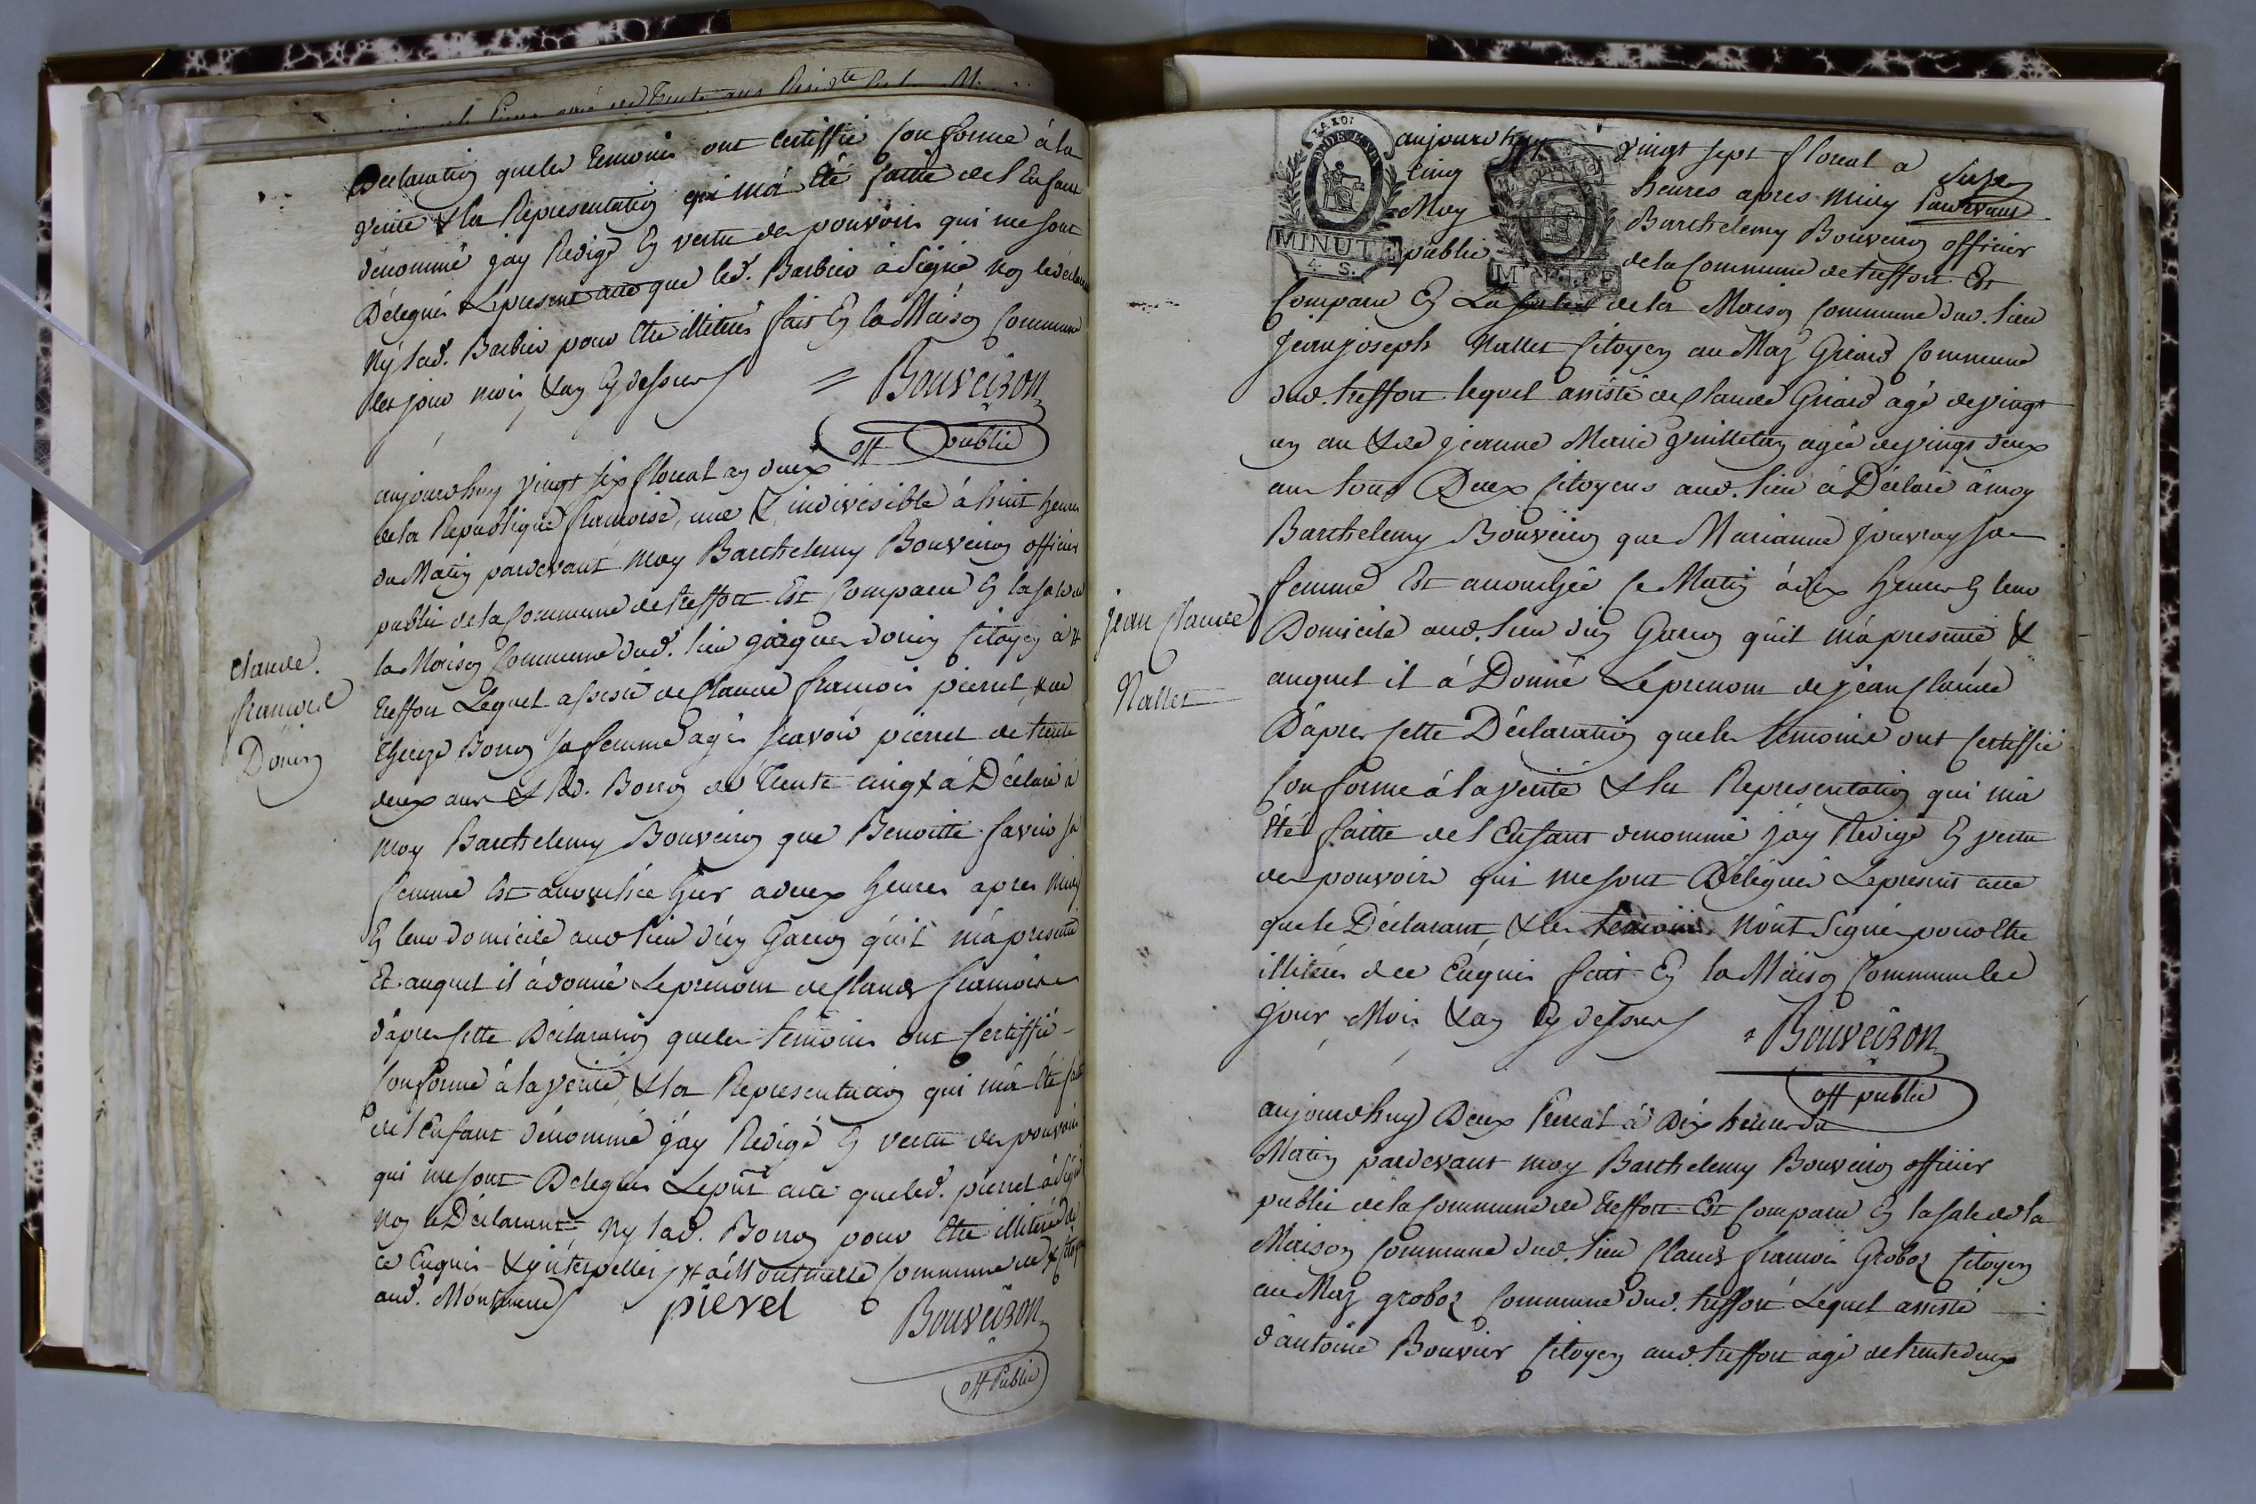 Declaration que les temoins ont certiffié conforme à la
verité & la Representation qui m'a été faitte de l'Enfant
denommé j'ay Redigé En vertu des pouvoirs qui me sont
Délegués Le present acte que led. Barbier à Signé non le déclarant
Ny lad. Barbier pour être illiterés fait En la Maison Commune
les jour mois & an Cy dessus
Bouveiron
off public
aujourdhuy vingt six floreal an deux
de la Republique francoise, une & indivisible à huit heures
du Matin pardevant moy Barthelemy Bouveiron officier
public de la Commune de treffort Est Comparu En la sale de
la Maison Commune dud. lieu jacques Donin Citoyen à
treffort Lequel assisté de Claude françois pierret, & de
Borron sa femme agés scavoir pierret de trente
deux ans & lad. Borron de trente cinq à Déclaré à
moy Barthelemy Bouveiron que Benoitte savin sa
femme Est accouchée hier a deux heures apres Midy
En leur domicile aud lieu d'un Garcon qu'il m'a presenté
Et auquel il à donné Le prenom de Claude francoise
d'apres cette Déclaration que les temoins ont certiffié
conforme à la verité, & la Representation qui m'a été faitte
de l'Enfant dénommé j'ay Redigé En vertu des pouvoirs
qui me sont Delegués Le pnt acte que led. pierret à signé
Non le Déclarant, Ny lad. Borron pour être illiterés de
ce Enquis & interpellés Commune de
aud.
pierel
Bouveiron
off Public
Claude
francoise
Donin
LA LOI
MINUTE
4. S.
MINUTE
aujourdhuy vingt sept floreal a six
cinq heures apres midy pardevant
Moy Barthélemy Bouveiron officier
public de la Commune de treffort Est
Comparu En La sale de la Maison Commune dud. lieu
Jean joseph Nallet Citoyen au Maz Griard Commune
dud. treffort lequel assisté de Claude Griard agé de vingt
un an & de jeanne Marie Guilleton agée de vingt deux
ans tous Deux Citoyens aud. lieu à Déclaré à moy
Barthelemy Bouveiron que Marianne jouvray sa
femme Est accouchée ce Matin à dix heures En leur
Domicile aud. lieu d'un Garcon qu'il m'a presenté &
auquel il à Donné Le prenom de jean Claude
D'apres cette Déclaration que les temoins ont certiffié
conforme à la verité & la Representation qui m'a
été faitte de l'Enfant denommé j'ay Redigé En vertu
des pouvoirs qui me sont Délegués Le present acte
que le Déclarant, & les temoins n'ont Signés pour être
illiterés de ce Enquis fait En la Maison Commune les
jour Mois & an Cy dessus
Bouveiron
off public
Jean Claude
Nallet
aujourdhuy Deux Prereal à Dix heures du
Matin pardevant moy Barthelemy Bouveiron officier
public de la Commune de treffort Est Comparu En la sale de la
Maison Commune dud. lieu Claude francois Groboz Citoyen
au Maz groboz Commune dud. treffort Lequel assisté
d'antoine Bouvier Citoyen aud. treffort agé de trente deux